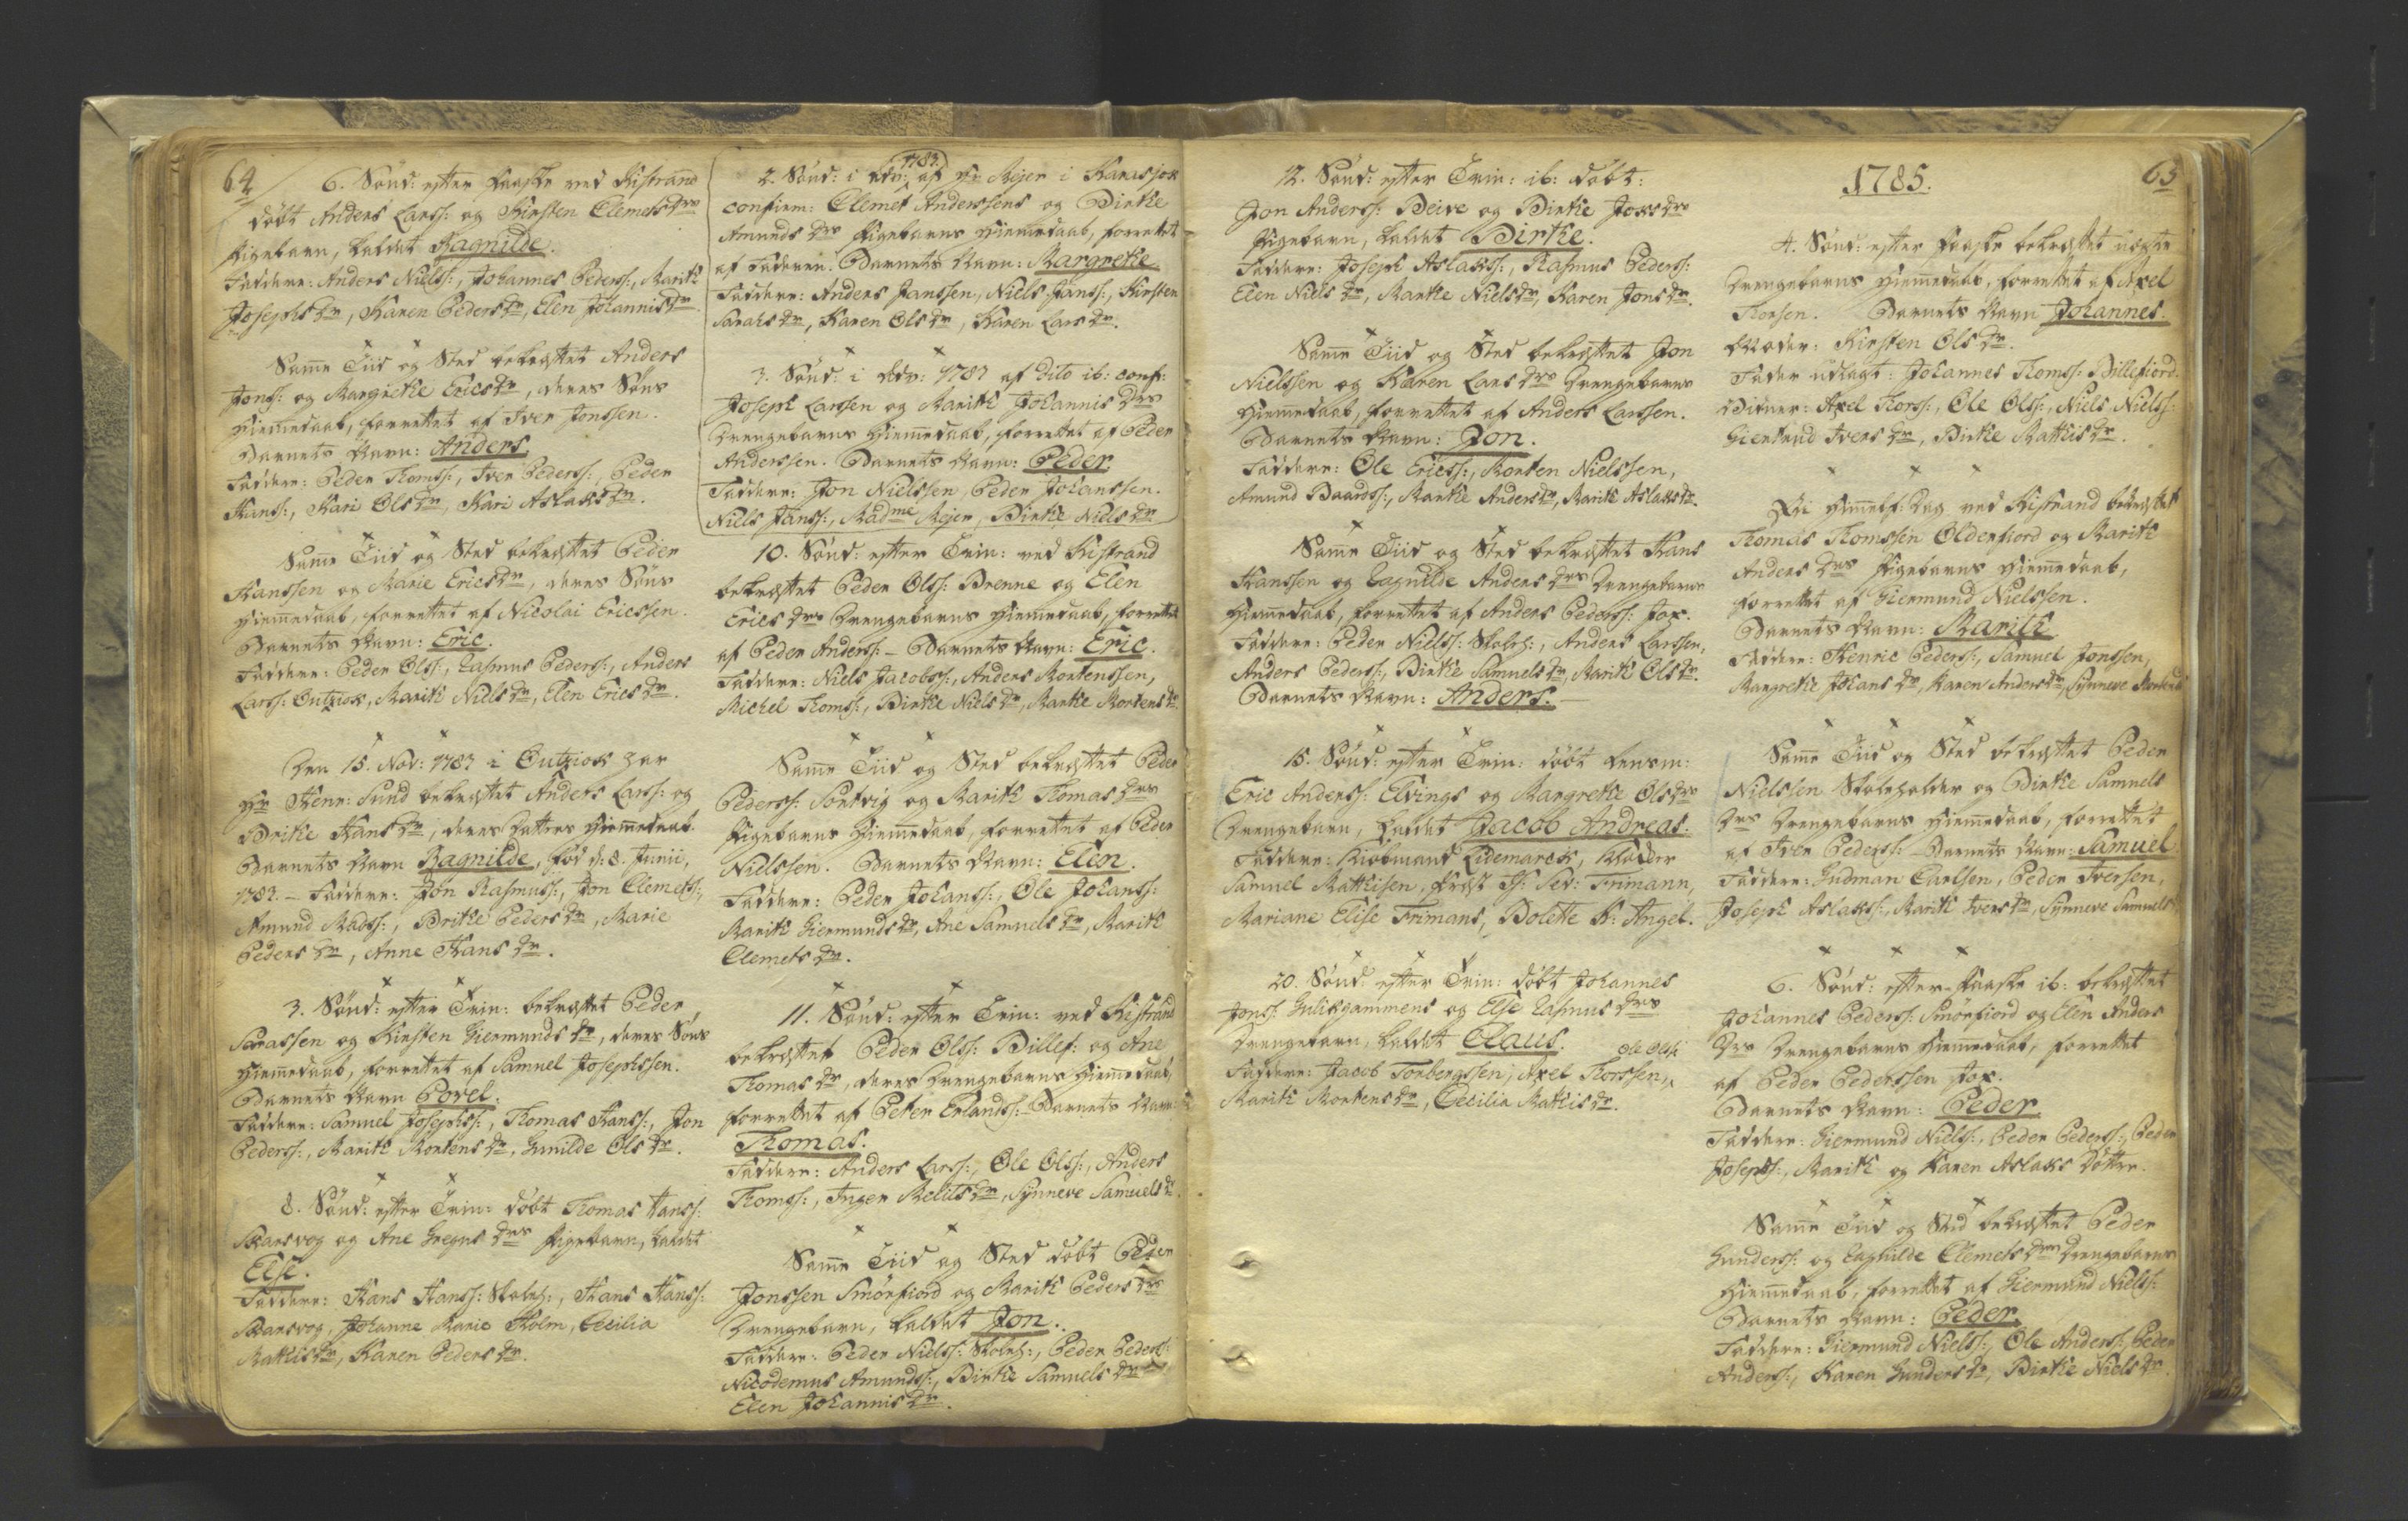 64
6. Sønd: efter Paaske ved Kistrand
døbt Anders Larss: og Kirsten Clemets Drs
Pigebarn, kaldet Ragnilde.
Faddere: Anders Nielss:, Johannes Peders:, Marith
Josephs Dr, Karen Peders Dr, Elen Johannis Dr.
Samme Tiid og Sted bekræftet Anders
Jonss: og Margrethe Erics Dr, deres Søns
Hiemmedaab, forrettet af Iver Jonssen.
Barnets Navn: Anders.
Faddere: Peder Thomss:, Iver Peders:, Peder
Hanss:, Kari Ols Dr, Kari Aslaks Dr.
Samme Tiid og Sted bekræftet Peder
Hanssen og Marie Erics Dr, deres Søns
Hiemmedaab, forrettet af Nicolai Ericssen.
Barnets Navn: Eric.
Faddere: Peder Olss:, Rasmus Peders:, Anders
Larss: Outzjok, Marith Niels Dr, Elen Erics Dr.
Den 15. Nov: 1783 i Outzjok har
Hr Henr: Sund bekræftet Anders Larss: og
Brithe Hans Dr, deres Datters Hiemmedaab.
Barnets Navn Ragnilde, fød d: 8. Junii,
1783. - Faddere: Jon Rasmuss:, Jon Clemets:,
Amund Madss:, Brithe Peders Dr, Marie
Peders Dr, Anne Hans Dr.
3. Sønd: efter Trin: bekræftet Peder
Sarassen og Kirsten Giermunds Dr, deres Søns
Hiemmedaab, forrettet af Samuel Josephssen.
Barnets Navn Povel.
Faddere: Samuel Josephss:, Thomas Hanss:, Jon
Peders:, Marith Mortens Dr, Gunilde Ols Dr.
8. Sønd: efter Trin: døbt Thomas Hanss:
Skarsvog og Ane Gregus Drs Pigebarn, kaldet
Else.
Faddere: Hans Hanss: Skoleh:, Hans Hanss:
Skarsvog, Johanne Marie Holm, Cecilia
Mathis Dr, Karen Peders Dr.
2. Sønd: i Adv: 1783. af Hr Rejer i Karasjok
confirm: Clemet Anderssens og Birthe
Amunds Drs Pigebarns Hiemmedaab, forrettet
af Faderen. Barnets Navn: Margrethe
Faddere: Anders Janssen, Niels Janss:, Kirsten
Sarahs Dr, Karen Ols Dr, Karen Lars Dr.
3. Sønd: i Adv: 1783 af dito ib: conf:
Joseph Larssen og Marith Johannis Drs
Drengebarns Hiemmedaab, forrettet af Peder
Anderssen. Barnets Navn: Peder
Faddere: Jon Nielssen, Peder Johanssen.
Niels Janss:, Madme Rejer, Birthe Niels Dr.
10. Sønd: efter Trin: ved Kistrand
bekræftet Peder Olss: Brenne og Elen
Erics Drs Drengebarns Hiemmedaab, forrettet
af Peder Anderss: - Barnets Navn: Eric.
Faddere: Niels Jacobss:, Anders Mortenssen,
Michel Thomss:, Birthe Niels Dr, Marthe Mortens Dr.
Samme Tiid og Sted bekræftet Peder
Peders: Sortvig og Marith Thomas Drs
Pigebarns Hiemmedaab, forrettet af Peder
Nielssen. Barnets Navn: Elen.
Faddere: Peder Johanss:, Ole Johanss:
Marith Giermunds Dr, Ane Samuels Dr, Marith
Clemets Dr.
11. Sønd: efter Trin: ved Kistrand
bekræftet Peder Olss: Billef: og Ane
Thomas Dr, deres Drengebarns Hiemmedaab,
forrettet af Peter Erlands: Barnets Navn
Thomas.
Faddere: Anders Larss:, Ole Olss:, Anders
Thomss:, Inger Relits Dr, Synneve Samuels Dr.
Samme Tiid og Sted døbt Peder
Jonssen Smørfiord og Marith Peders Drs
Drengebarn, kaldet Jon.
Faddere: Peder Nielss: Skoleh:, Peder Peders:
Nicodemus Amunds:, Birthe Samuels Dr
Elen Johannis Dr.
12. Sønd: efter Trin: ib: døbt:
Jon Anderss: Beive og Birthe Jons Drs
Pigebarn, kaldet Birthe.
Faddere: Joseph Aslakss:, Rasmus Peders:
Elen Niels Dr, Marthe Niels Dr, Karen Jons Dr.
Samme Tiid og Sted bekræftet Jon
Nielssen og Karen Lars Drs Drengebarns
Hiemmedaab, forrettet af Anders Larssen.
Barnets Navn: Jon.
Faddere: Ole Ericss:, Morten Nielssen,
Amund Baards:, Marthe Anders Dr, Marith Aslaks Dr.
Samme Tiid og Sted bekræftet Hans
Hanssen og Ragnilde Anders Drs Drengebarns
Hiemmedaab, forrettet af Anders Peders: Jox.
Faddere: Peder Nielss: Skoleh:, Anders Larssen,
Anders Peders:, Birthe Samuels Dr, Marith Ols Dr.
Barnets Navn: Anders. -
15. Sønd: efter Trin: døbt Lensm:
Eric Anderss: Elvings og Margrethe Ols Drs
Drengebarn, kaldet Jacob Andreas.
Faddere: Kiøbmand Lidemarck, Klokker
Samuel Mathisen, Provst H: Sev: Frimann,
Mariane Elise Frimans, Bolette K: Angel.
20. Sønd: efter Trin: døbt Johannes
Jons: Guliksgammens og Else Rasmus Drs
Drengebarn, kaldet Claus.
Ole Olss:
Faddere: Jacob Torbergssen, Axel Thorssen,
Marith Mortens Dr, Cecilia Mathis Dr.
65
1785.
4. Sønd: efter Paaske bekræftet uægte
Drengebarns Hiemmedaab, forrettet af Axel
Thorsen. Barnets Navn Johannes.
Moder: Kirsten Ols Dr.
Fader udlagt: Johannes Thomss: Billefiord.
Vidner: Axel Thorss:, Ole Olss:, Niels Nielss:
Giertrud Ivers Dr, Birthe Mathis Dr.
Chr: Himmelf: Dag ved Kistrand bekræftet
Thomas Thomssen Olderfiord og Marith
Anders Drs Pigebarns Hiemmedaab,
forrettet af Giermund Nielssen.
Barnets Navn: Marith
Faddere: Henric Peders:, Samuel Jonssen,
Margrethe Johans Dr, Karen Anders Dr, Synneve Mortens
Samme Tiid og Sted bekræftet Peder
Nielssen Skoleholder og Birthe Samuels
Drs Drengebarns Hiemmedaab, forrettet
af Iver Peders: - Barnets Navn: Samuel
Faddere: Gudman Carlsen, Peder Iversen,
Joseph Aslakss:, Marith Ivers Dr, Synneve Samuels
6. Sønd: efter Paaske ib: bekræftet
Johannes Peders: Smørfiord og Elen Anders
Drs Drengebarns Hiemmedaab, forrettet
af Peder Pederssen Jox.
Barnets Navn: Peder
Faddere: Giermund Nielss:, Peder Peders:, Peder
Josephs:, Marith og Karen Aslaks Døttre.
Samme Tiid og Sted bekræftet Peder
Gunders: og Ragnilde Clemets Drs Drengebarns
Hiemmedaab, forrettet af Giermund Nielss:
Barnets Navn: Peder.
Faddere: Giermund Nielss:, Ole Anderss:, Peder
Anderss:, Karen Gunders Dr, Birthe Niels Dr.